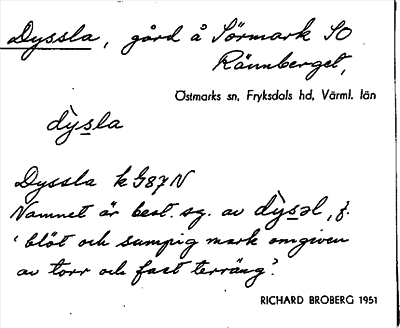 Dyssla, gård å Sörmark SO
Rännberget,
Östmarks sn, Fryksdals hd, Värml. län
dỳsla
Dyssla k G87N
Namnet är best. sg. av dỳsəl, f.
'blöt och sumpig mark omgiven
av torr och fast terräng'.
RICHARD BROBERG 1951